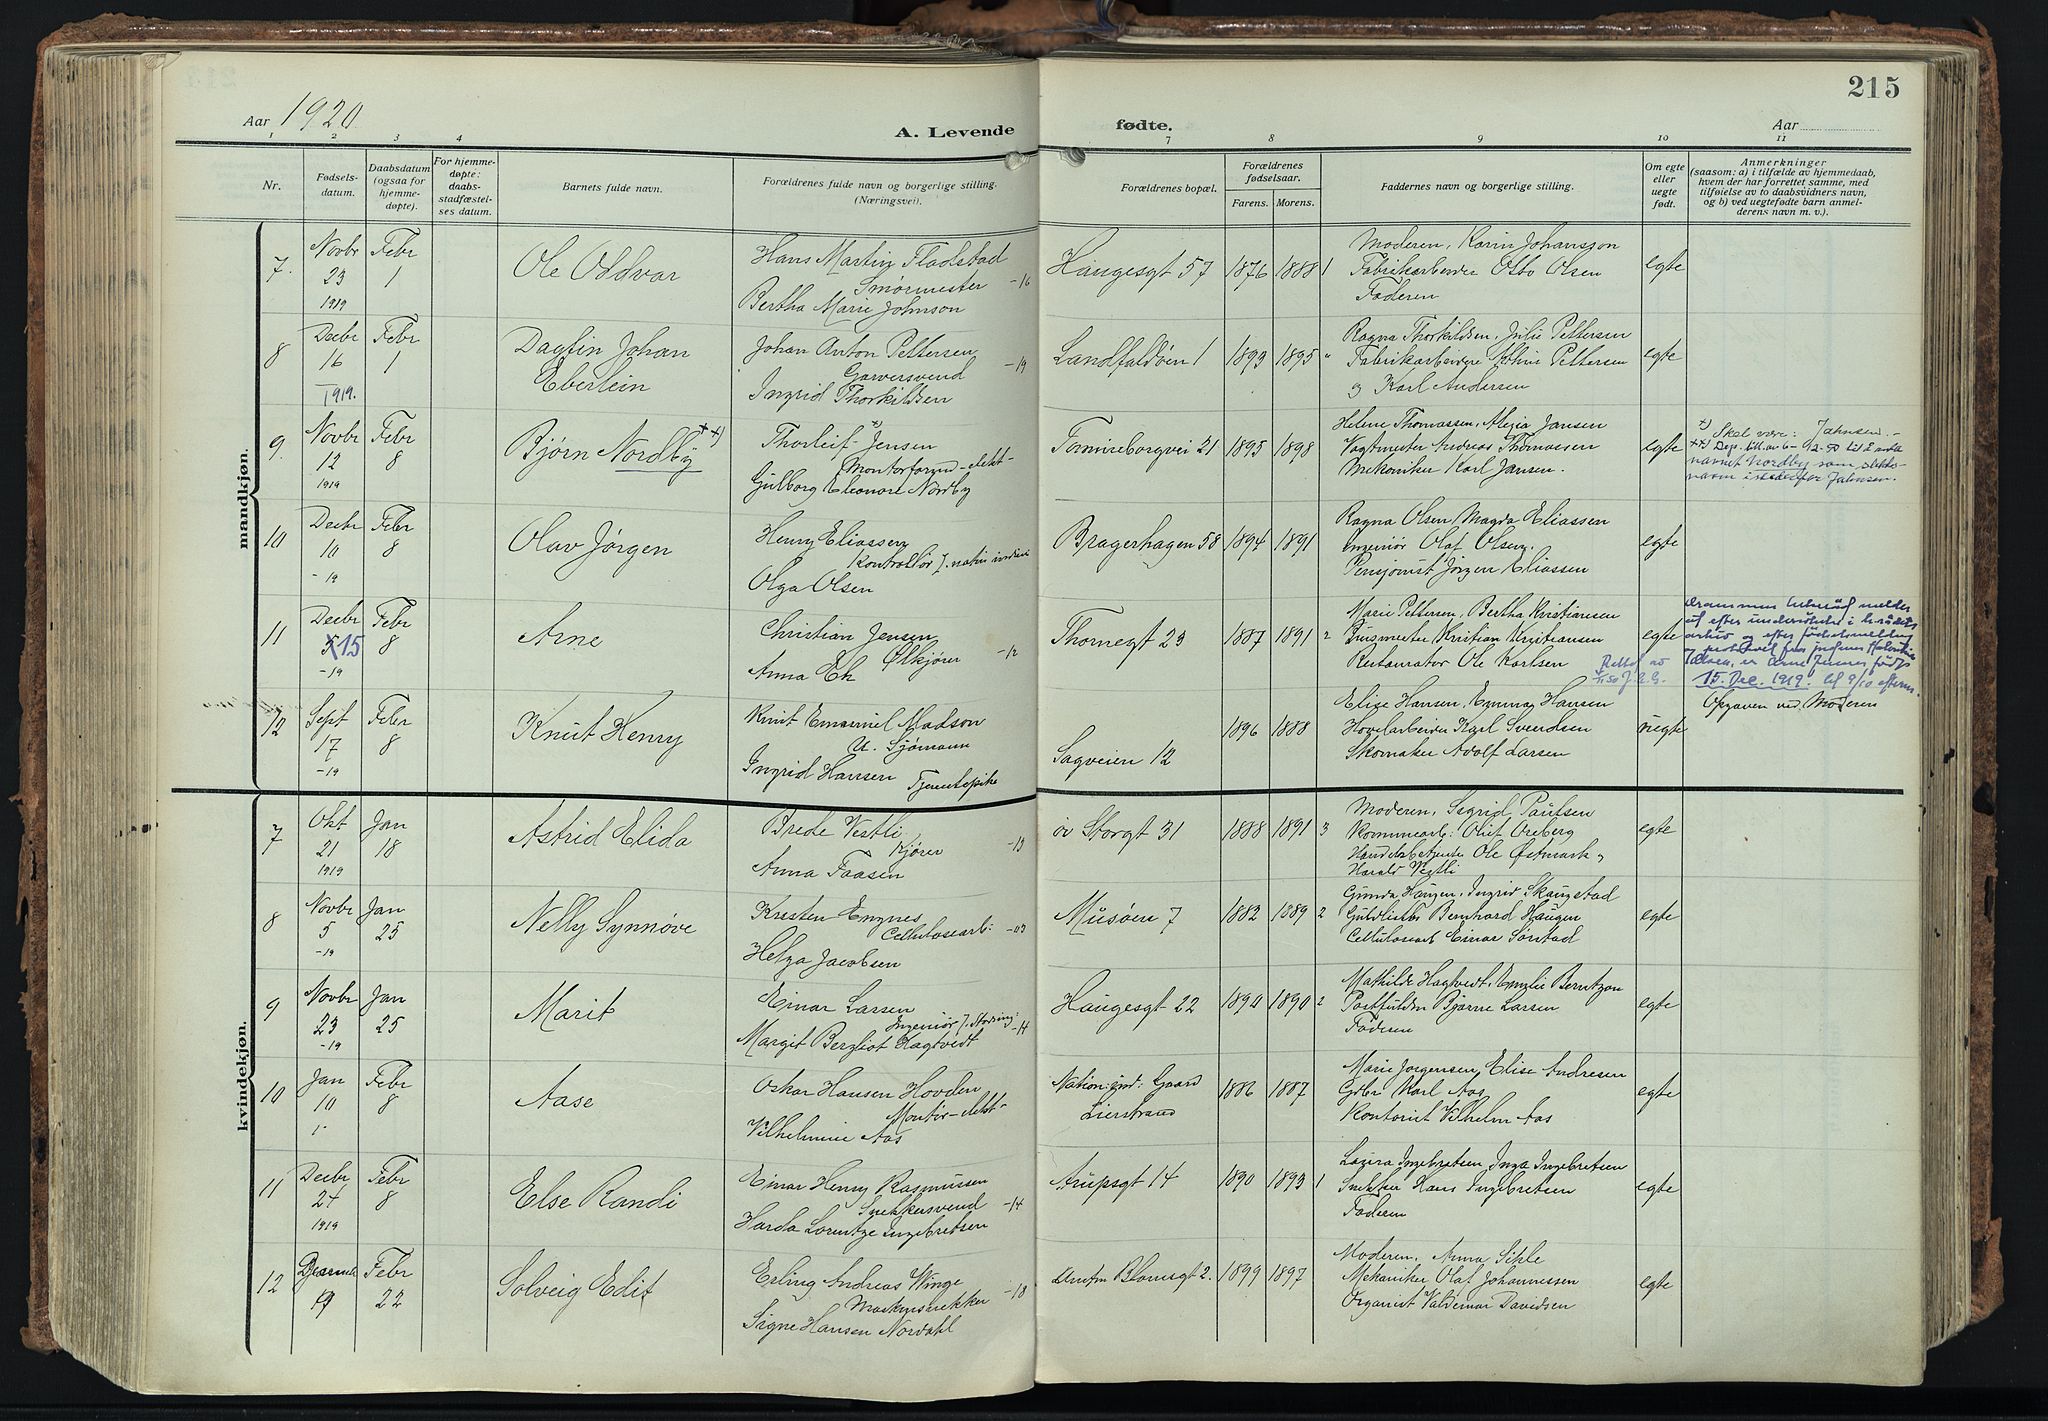 215
Aar 1920
A. Levende
fødte.
Aar
1 2 3 4 7 8 9 10 11
Nr.
Fødsels-
datum.
Daabsdatum
(ogsaa for
hjemme-
døpte).
For hjemme-
døpte:
daabs-
stadfæstel-
ses datum.
Barnets fulde navn.
Forældrenes fulde navn og borgerlige stilling.
(Næringsvei).
Forældrenes bopæl.
Forældrenes
fødselsaar.
Farens. Morens.
Faddernes navn og borgerlige stilling.
Om egte
eller
uegte
født.
Anmerkninger
(saasom: a) i tilfælde av hjemmedaab,
hvem der har forrettet samme, med
tilføielse av to daabsvidners navn,
og b) ved uegtefødte barn anmel-
derens navn m. v.).
mandkjøn.
7.
Novbr
23
1919
Febr
1
Ole Oddvar
Hans Martin Fladstad
Smørmester -16
Bertha Marie Johnson
Haugesgt 57
1876 1888 1
Moderen, Karin Johansson
Fabrikarbeider Otto Olsen
Faderen
egte
8
Decbr
16
1919.
Febr
1
Dagfin Johan
Eberlein
Johan Anton Pettersen
Garversvend -19
Ingrid Thorkildsen
Landfaldøen 1
1893 1895 "
Ragna Thorkildsen, Julie Pettersen
Fabrikarbeidere Pettersen
og Karl Andersen
egte
9.
Novbr
12
1919
Febr
8
Bjørn Nordby xx)
Thorleif Jensen x)
Gulborg Eleonore Nordby
Tomineborgvei 21
1895 1898
Helene Thomassen, Jansen
Vogtmester Andreas Thomassen
Mekaniker Karl Jansen.
egte
x) Skal være: Jahnsen.
navnet Nordby som slekts-
navn istedenfor Jahnsen.
10
Decbr
10
-19
Febr
8
Olav Jørgen
Henry Eliassen
Kontrollør
Olga Olsen
Bragerhagen 58
1894 1891
Ragna Olsen, Magda Eliassen
Ingeniør Olaf Olsen,
Pensjonist Jørgen Eliassen
egte
11
Decbr
15
-19
Febr
8
Arne
Christian Jensen
Ølkjører -12
Anna Ek
Thornegt 23
1887 1891 2
Marie Pettersen, Bertha Kristiansen
Kristian Kristiansen
Restauratør Ole Karlsen
egte
Drammen melder
at efter undersøkelse i
arkiv og efter fødselsmelding
og protokoll fra
er Arne Jensen født
15. Dec. 1919.
12
Sept
17
-19
Febr
8
Knut Henry
Knut Emanuel Madson
U. Sjømann
Ingrid Hansen Tjenestepike
Sagveien 12
1896 1888
Elise Hansen, Emma Hansen
Høvelarbeider Karl Svendsen
Skomaker Adolf Larsen
uegte
Opgaven ved Moderen
kvindekjøn.
7
Okt
21
1919
Jan
18
Astrid Elida
Brede Vestli
Kjører -13
Anna Faasen
øv Storgt 31
1888 1891 3
Moderen, Sigrid Paulsen
Kommunearb: Oluf Oreberg
Handelsbetjente Ole Østmark og
Harald Vestli
egte
8
Novbr
5
-19
Jan
25
Nelly Synnøve
Kresten Engnes
Cellulosearb: -07
Helga Jacobsen
Musøen 7
1882 1889 2
Gunda Haugen, Ingrid Skaugstad
Bernhard Haugen
Cellulosearb Einar Sørstad
egte
9
Novbr
23
-19
Jan
25
Marit
Einar Larsen
Ingeniør -14
Margit Bergliot Hagtvedt
Haugesgt 22
1890 1890 2
Mathilde Hagtvedt, Emilie Berntzon
Bjarne Larsen
Faderen
egte
10
Jan
10
Febr
8
Aase
Oskar Hansen Hovden
Montør-elekt-
Vilhelmine Aas
Nation: ind: Gaard
Lierstrand
1886 1887
Marie Jørgensen, Elise Andresen
Karl Aas
Kontorist Vilhelm Aas
egte
11
Decbr
24
1919
Febr
8
Else Randi
Einar Henry Rasmussen
Snekkersvend -14
Harda Lorentze Ingebretsen
Arupsgt 14
1890 1893 1
Laura Ingebretsen, Inga Ingebretsen
Snekker Hans Ingebretsen
Faderen
egte
12
Febr
22
Solveig Edit
Erling Andreas Winge
Maskinstrekker -18
Signe Hansen Nordahl
Blomsgt 2.
1899 1897
Moderen, Anna Sikle
Mekaniker Olaf Johannessen
Organist Valdemar Davidsen
egte